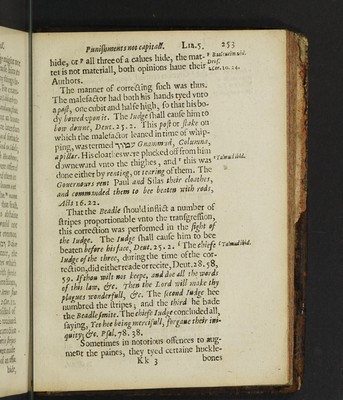 Punishments not capitall. LIB. 5. 253
hide, or all three of a calues hide, the mat-
ter is not materiall, both opinions haue their
Authors.
The manner of correcting such was thus.
The malefactor had both his hands tyed vnto
a post, one cubit and halfe high, so that his bo-
dy bowed vpon it. The Iudge shall cause him to
bow downe, Deut. 25. 2. This post or stake on
which the malefactor leaned in time of whip-
ping, was termed עמוד Gnammud, Columna,
a pillar. His cloathes were plucked off from him
downeward vnto the thighes, and this was
done either by renting, or tearing of them. The
Gouernours rent Paul and Silas their cloathes,
and commanded them to bee beaten with rods,
Acts 16. 22.
That the Beadle should inflict a number of
stripes proportionable vnto the transgression,
this correction was performed in the sight of
the Iudge. The Iudge shall cause him to bee
beaten before his face, Deut. 25. 2. The chiefe
Iudge of the three, during the time of the cor-
rection, did either reade or recite, Deut. 28. 58,
59. If thou wilt not keepe, and doe all the words
of this law, &c. Then the Lord will make thy
plagues wonderfull, &c. The second Iudge hee
numbred the stripes; and the third he bade
the Beadle smite. The chiefe Iudge concluded all,
saying, Yet hee being mercifull, forgaue their ini-
quity, &c. Psal. 78. 38.
Sometimes in notorious offences to aug-
ment the paines, they tyed certaine huckle-
Kk 3 bones
Talmud ibid.
Talmud ibid.